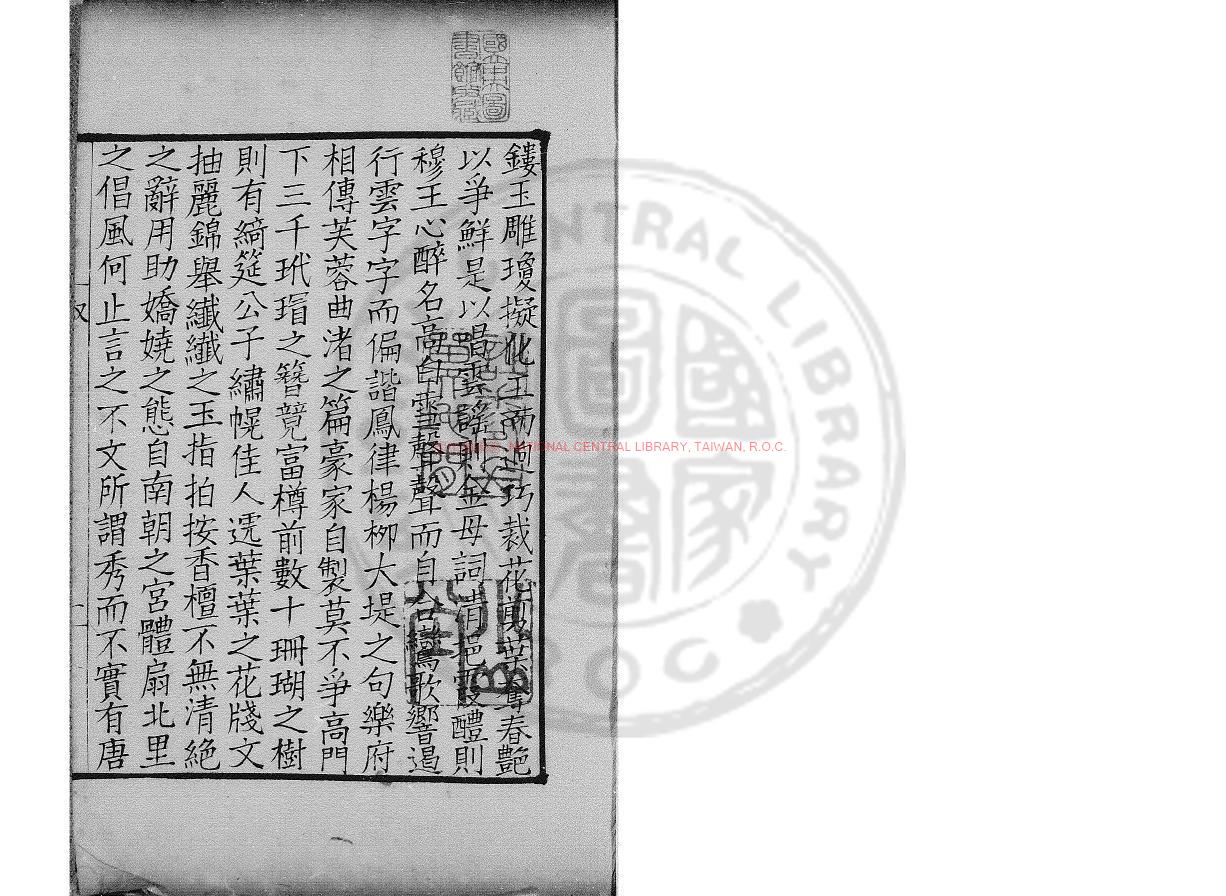 鏤玉雕瓊擬化工而迥巧裁花剪葉奪春艷
以爭鮮是以唱雲謠則金母詞清挹霞醴則
穆王心醉名高白雪聲聲而自合鸞歌響遏
行雲字字而偏諧鳳律楊栁大堤之句樂府
相傳芙蓉曲渚之篇豪家自製莫不爭高門
下三千玳瑁之簪竟富樽前數十珊瑚之樹
則有綺筵公子繡幌佳人遞葉葉之花牋文
抽麗錦舉纖纖之玉指拍按香檀不無清絕
之辭用助嬌嬈之態自南朝之宮體扇北里
之倡風何止言之不文所謂秀而不實有唐
國立中央圖書館收藏
NATIONAL CENTRAL LIBRARY, TAIWAN, R.O.C.
CENTRAL LIBRARY
ROC